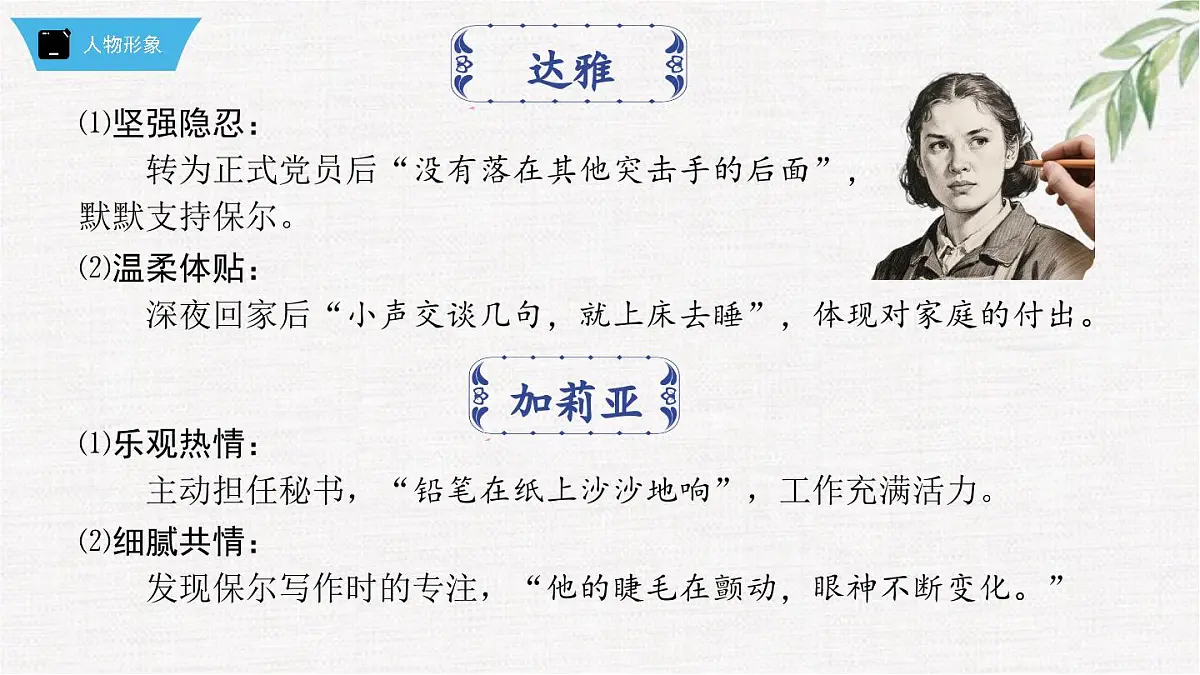 人物形象
达雅
⑴坚强隐忍：
转为正式党员后“没有落在其他突击手的后面”，
默默支持保尔。
⑵温柔体贴：
深夜回家后“小声交谈几句，就上床去睡”，体现对家庭的付出。
加莉亚
⑴乐观热情：
主动担任秘书，“铅笔在纸上沙沙地响”，工作充满活力。
⑵细腻共情：
发现保尔写作时的专注，“他的睫毛在颤动，眼神不断变化。”